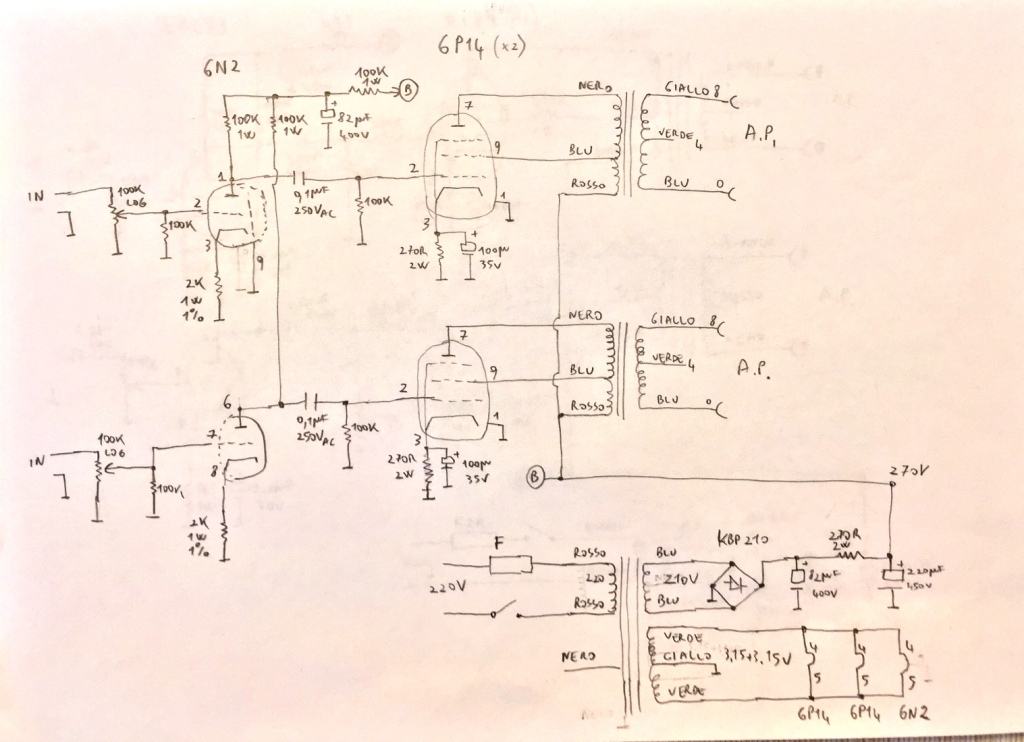 6P14 (x2)
6N2
100K
1W
B
100K
1W
100K
1W
82µF
400V
7
NERO
GIALLO 8
VERDE 4
A.P.
BLU
BLU 0
ROSSO
9
2
1
3
1
0,1µF
250VAC
100K
270R
2W
100µ
35V
IN
100K
LOG
2
100K
3
9
2K
1W
1%
7
NERO
GIALLO 8
VERDE 4
A.P.
BLU
BLU 0
ROSSO
9
2
1
3
6
0,1µF
250VAC
100K
270R
2W
100µ
35V
IN
100K
LOG
7
8
100K
2K
1W
1%
B
270V
F
220V
ROSSO
220
ROSSO
NERO
BLU
210V
BLU
KBP210
82µF
400V
270R
2W
220µF
450V
VERDE
GIALLO 3,15+3,15V
VERDE
4
5
4
5
4
5
6P14 6P14 6N2